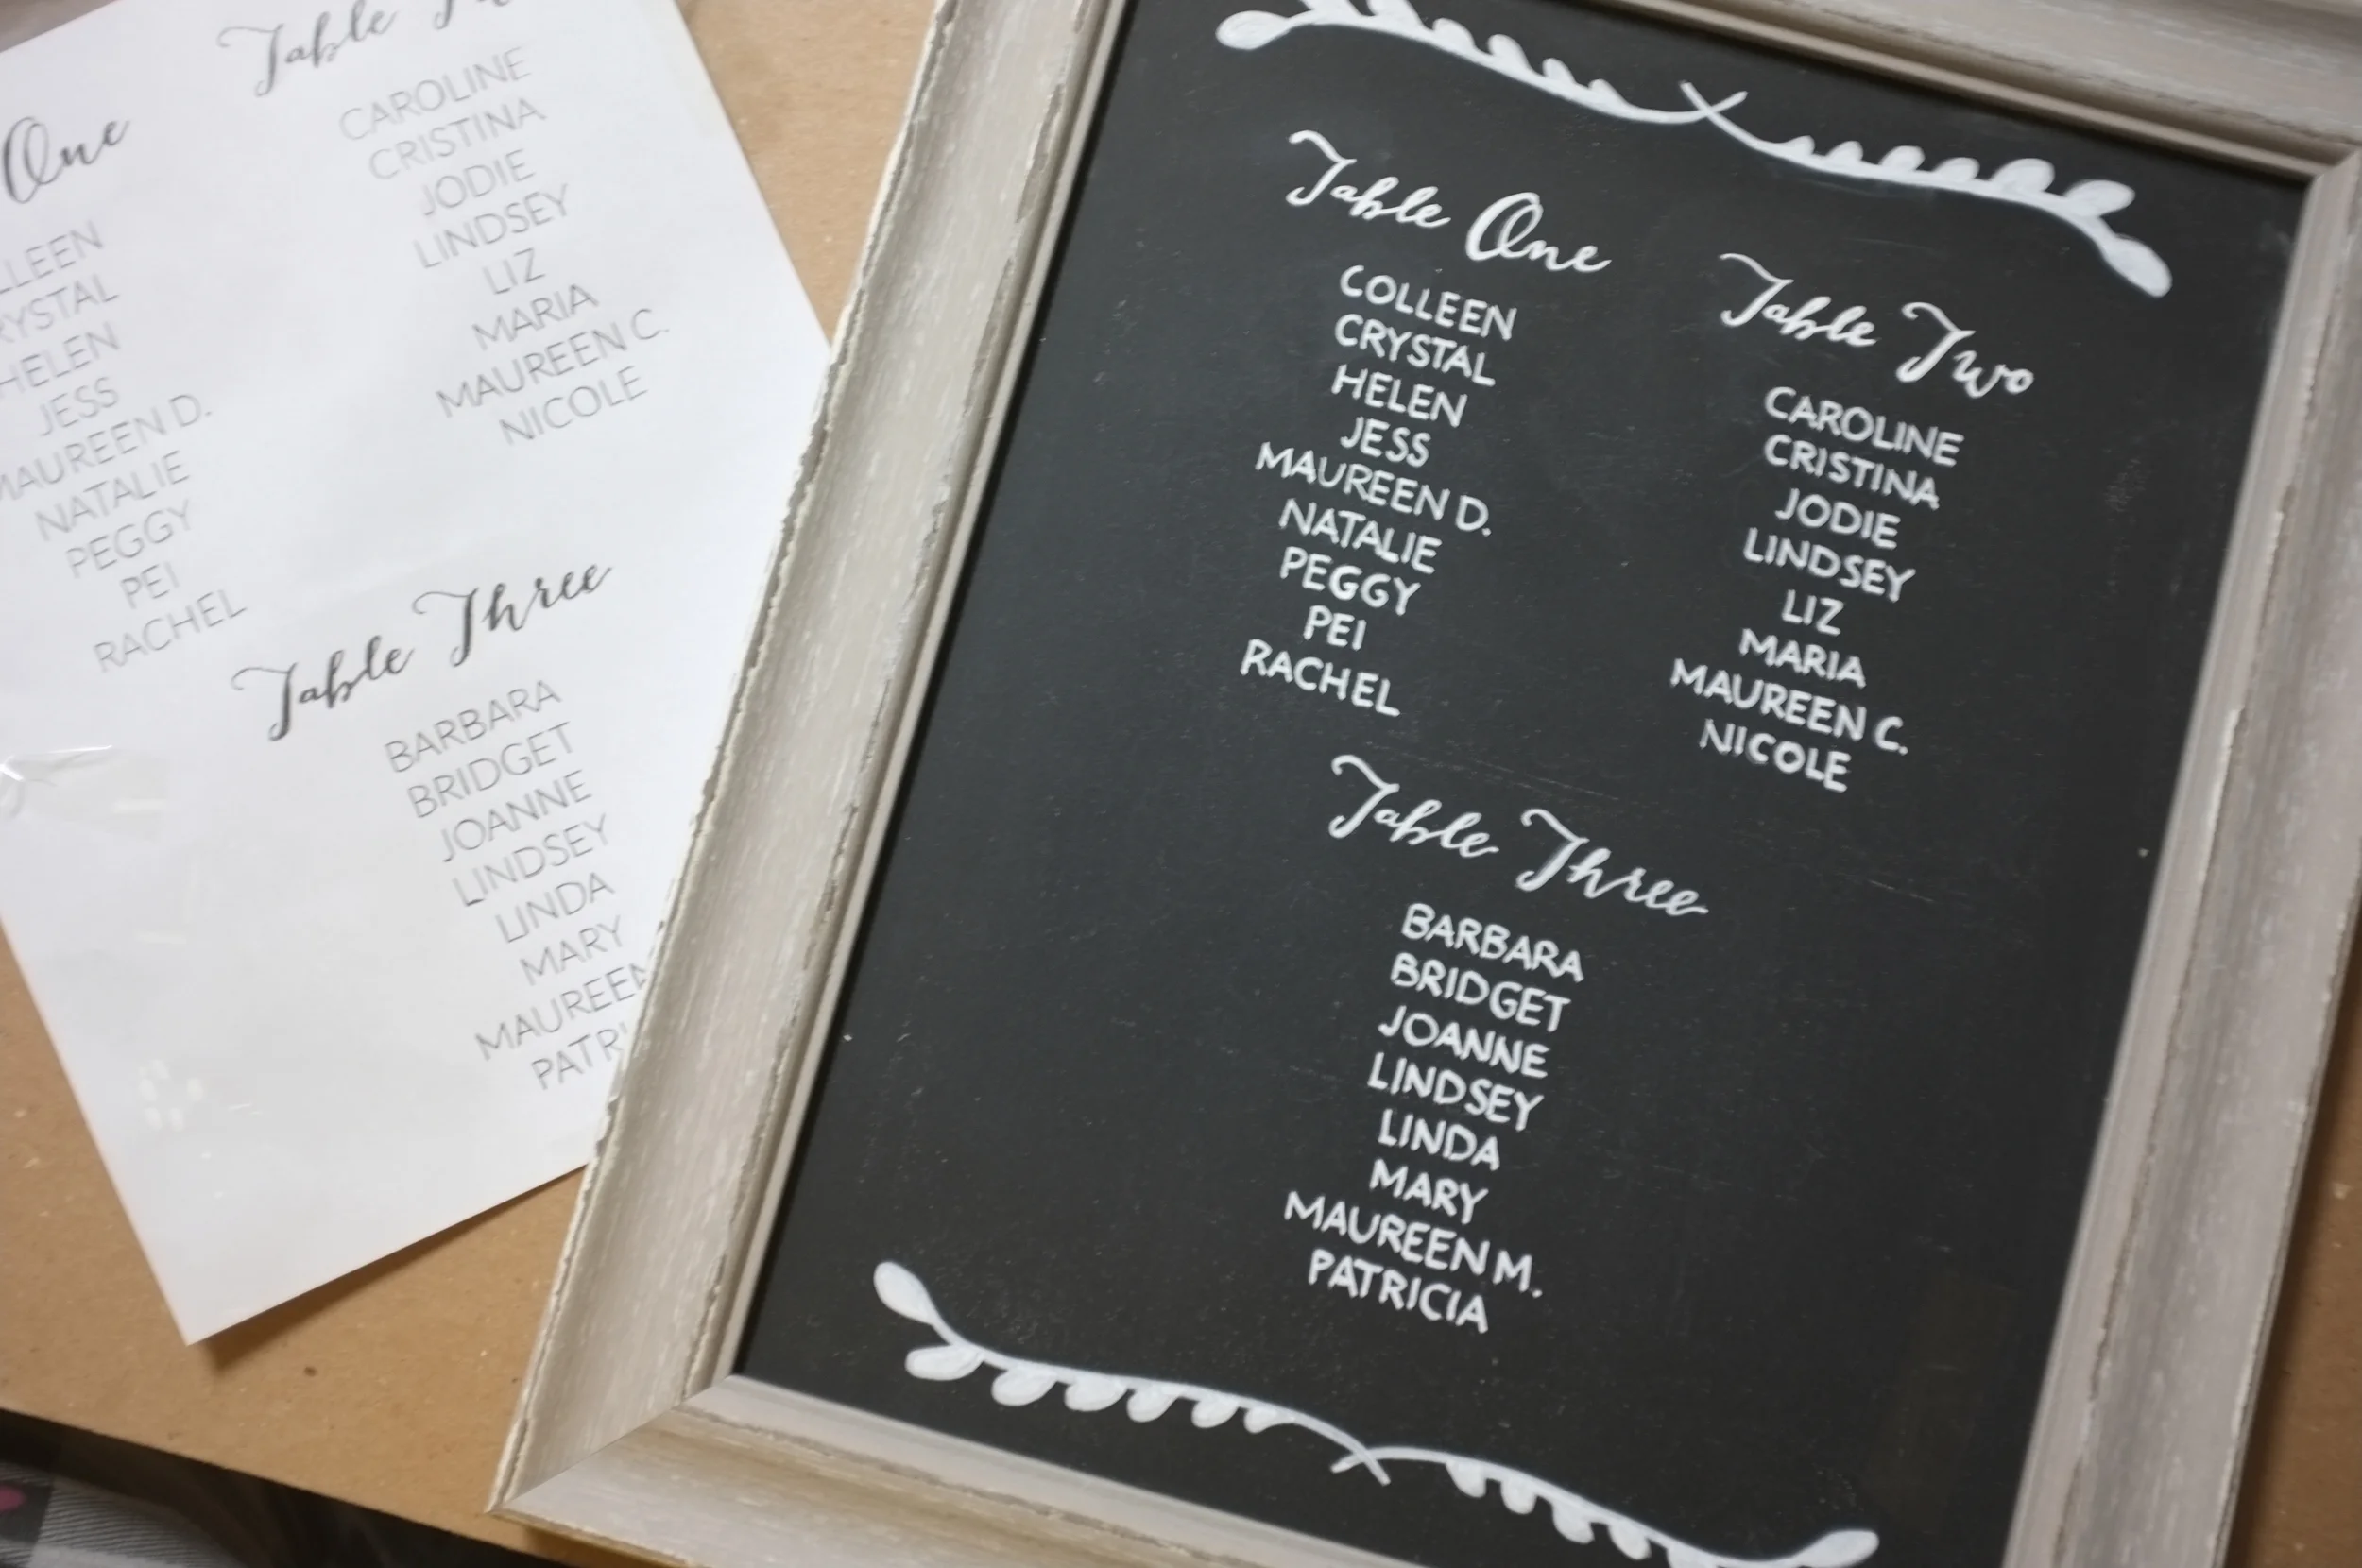 Table
CAROLINE
CRISTINA
JODIE
LINDSEY
LIZ
MARIA
MAUREEN C.
NICOLE
One
HELEN
JESS
MAUREEN D.
NATALIE
PEGGY
PEI
RACHEL
Table Three
BARBARA
BRIDGET
JOANNE
LINDSEY
LINDA
MARY
MAUREEN
Table One
COLLEEN
CRYSTAL
HELEN
JESS
MAUREEN D.
NATALIE
PEGGY
PEI
RACHEL
Table Two
CAROLINE
CRISTINA
JODIE
LINDSEY
LIZ
MARIA
MAUREEN C.
NICOLE
Table Three
BARBARA
BRIDGET
JOANNE
LINDSEY
LINDA
MARY
MAUREEN M.
PATRICIA